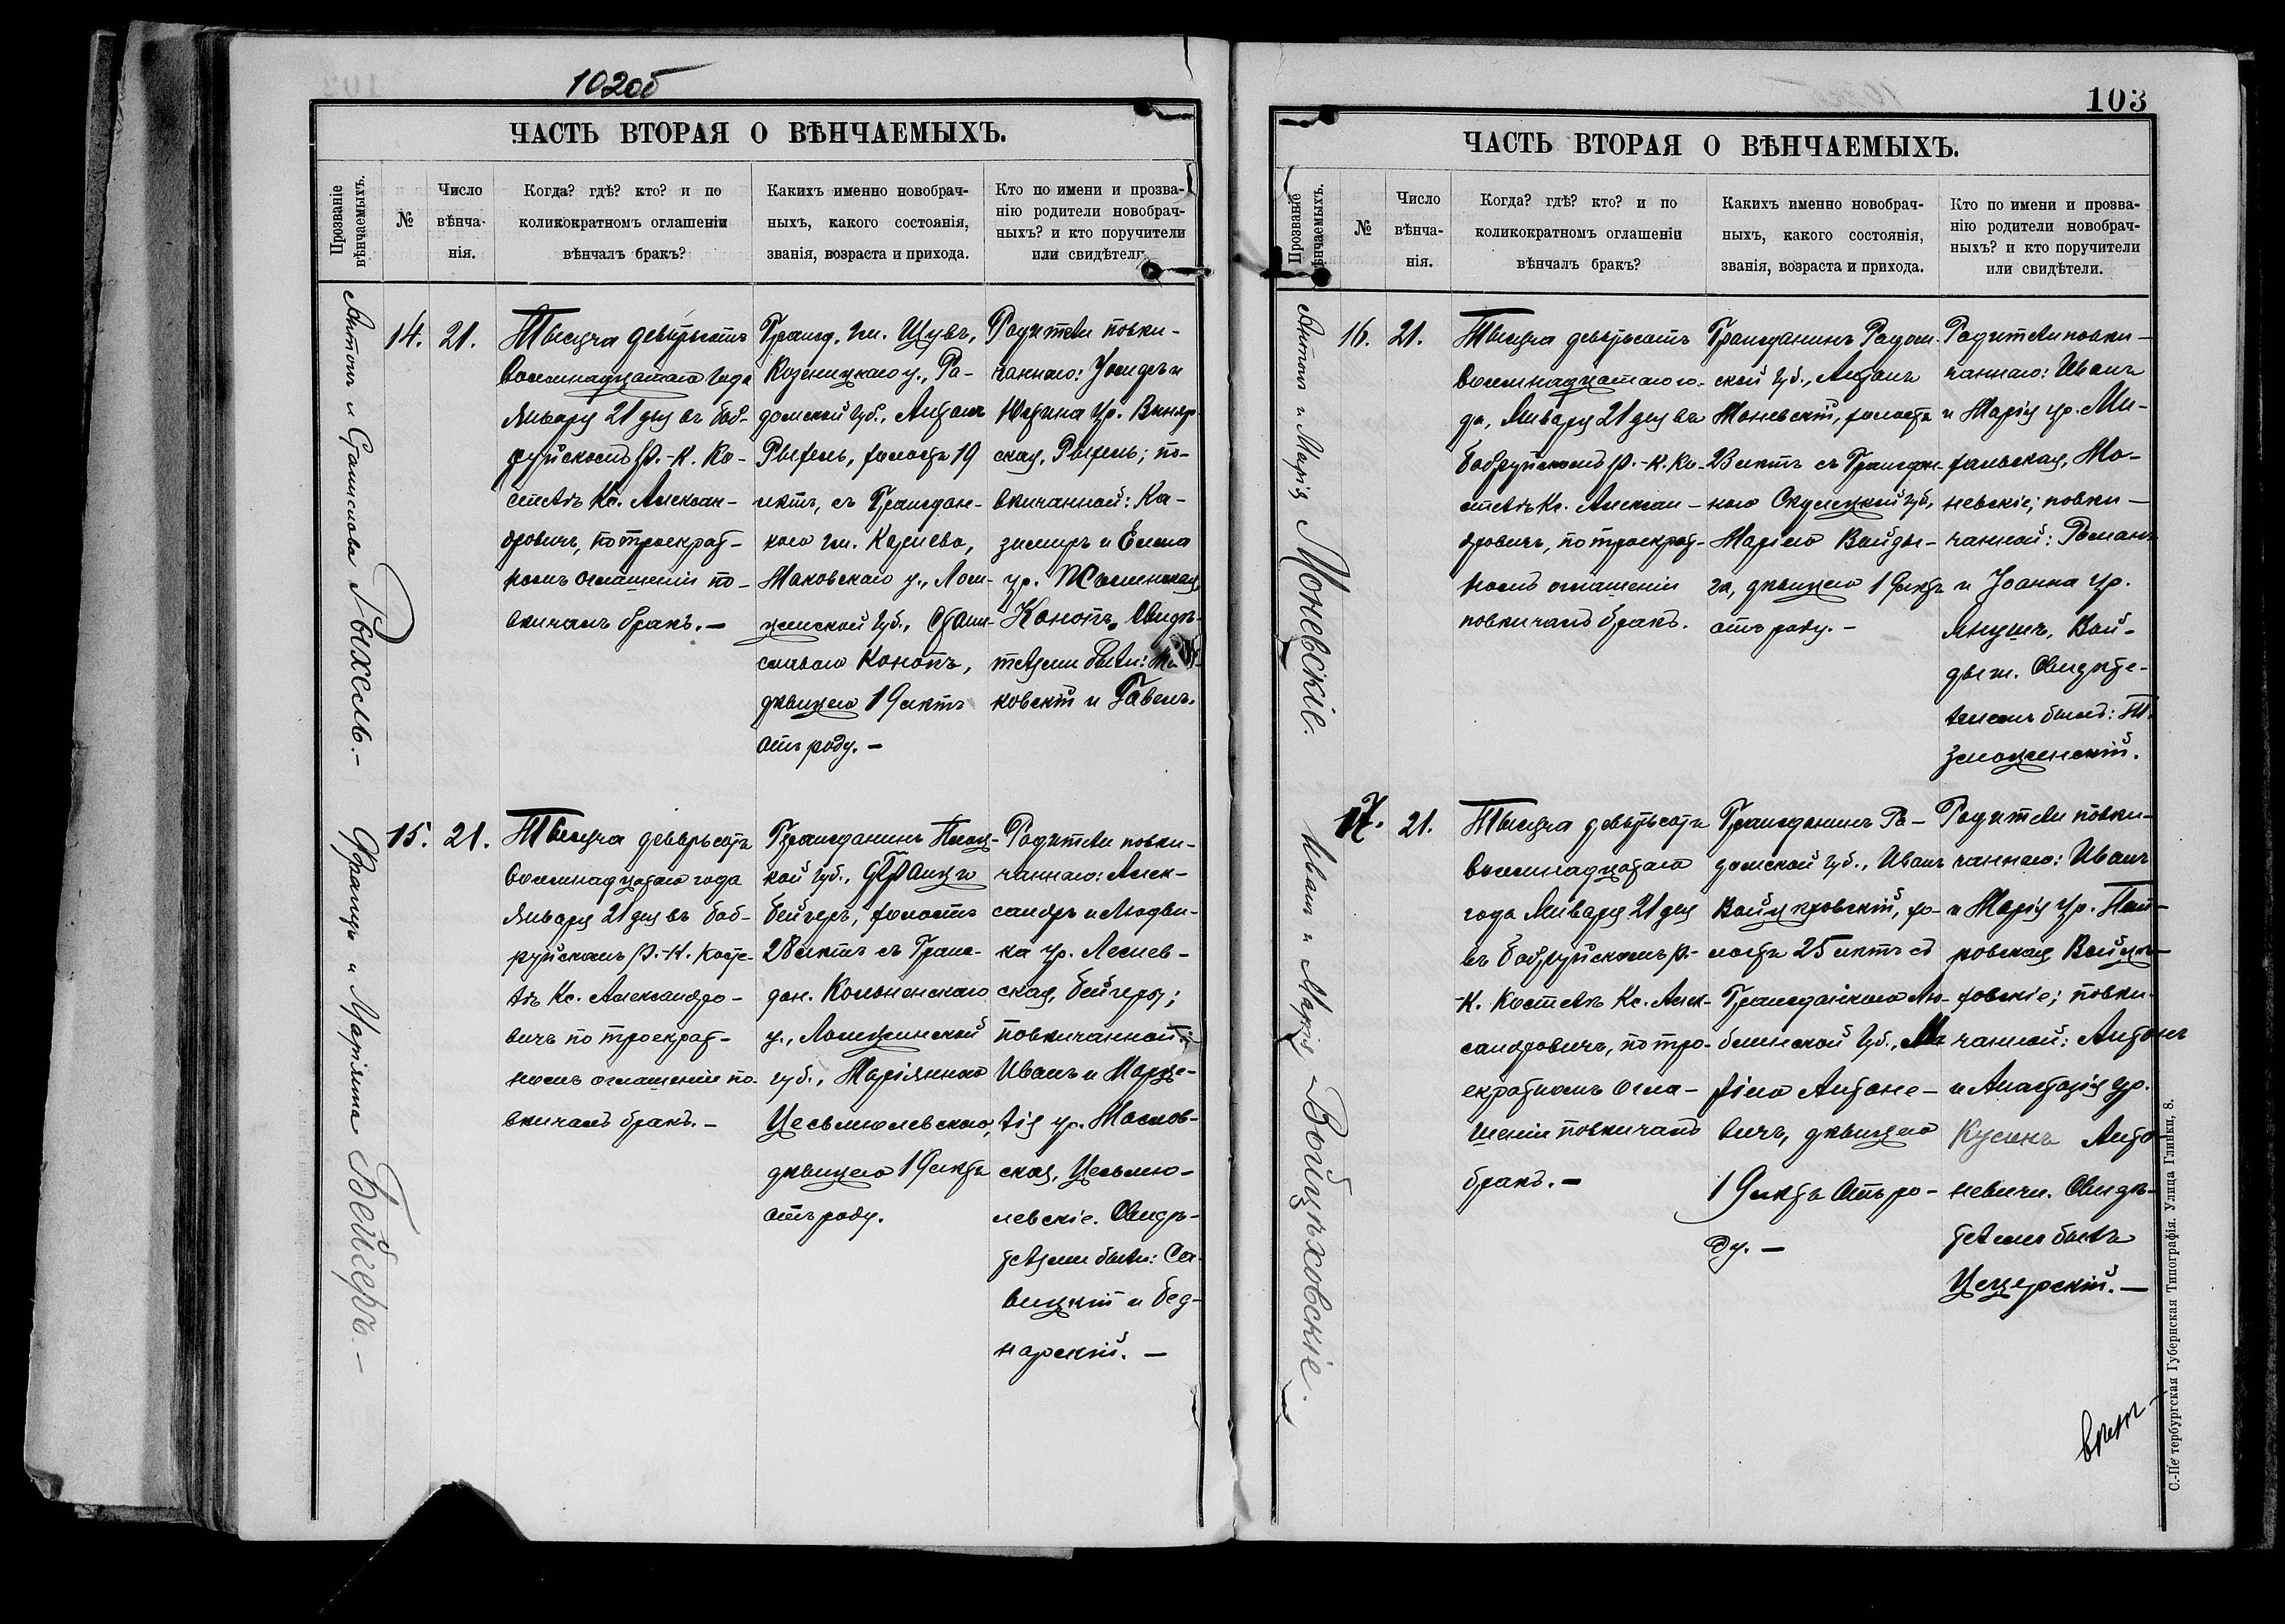 102об
ЧАСТЬ ВТОРАЯ О ВѢНЧАЕМЫХЪ.
Прозваніе
вѣнчаемыхъ.
№
Число
вѣнча-
нія.
Когда? гдѣ? кто? и по
коликократномъ оглашеніи
вѣнчалъ бракъ?
Какихъ именно новобрач-
ныхъ, какого состоянія,
званія, возраста и прихода.
Кто по имени и прозва-
нію родители новобрач-
ныхъ? и кто поручители
или свидѣтели.
Антонъ и Станислава Рыхель.–
14.
21.
Тысяча девятьсотъ
восемнадцатаго года
Января 21 дня въ Боб-
руйскомъ Р.-К. Ко-
стелѣ Кс. Алексан-
дровичъ, по троекрат-
номъ оглашеніи по-
вѣнчалъ бракъ.–
Гражд. гм.
Козеницкаго у., Ра-
домской губ., Антонъ
Рыхель, холостъ 19
лѣтъ, съ Граждан-
кою гм. Карнево,
Маковскаго у., Лом-
жинской губ., Стани-
славою Конопъ,
дѣвицею 19 лѣтъ
отъ роду.–
Родители повѣн-
чаннаго: Іосифъ и
Юстина ур.
ская, Рыхель; по-
вѣнчанной: Ка-
зимиръ и Елена
ур.
Конопъ. Свидѣ-
телями были:
ковскій и Гавелъ.
Францъ и Маріянна Бейгеръ.–
15.
21.
Тысяча девятьсотъ
восемнадцатаго года
Января 21 дня въ Боб-
руйскомъ Р.-К. Косте-
лѣ Кс. Александро-
вичъ по троекрат-
номъ оглашеніи по-
вѣнчалъ бракъ.–
Гражданинъ Плоц-
кой губ., Францъ
Бейгеръ, холостъ
28 лѣтъ съ Граж-
дан. Кольненскаго
у., Ломжинской
губ., Маріянною
Цесьмолевскою,
дѣвицею 19 лѣтъ
отъ роду.
Родители повѣн-
чаннаго: Алек-
сандръ и Людви-
ка ур. Леснев-
ская, Бейгеры;
повѣнчанной:
Иванъ и Марце-
лія ур. Маслов-
ская, Цесьмо-
левскіе. Свидѣ-
телями были: Са-
вицкій и Бед-
нарскій.–
103
ЧАСТЬ ВТОРАЯ О ВѢНЧАЕМЫХЪ.
Прозваніе
вѣнчаемыхъ.
№
Число
вѣнча-
нія.
Когда? гдѣ? кто? и по
коликократномъ оглашеніи
вѣнчалъ бракъ?
Какихъ именно новобрач-
ныхъ, какого состоянія,
званія, возраста и прихода.
Кто по имени и прозва-
нію родители новобрач-
ныхъ? и кто поручители
или свидѣтели.
Антонъ и Марія Моневскіе.
16.
21.
Тысяча девятьсотъ
восемнадцатаго го-
да, Января 21 дня въ
Бобруйскомъ Р.-К. Ко-
стелѣ Кс. Алексан-
дровичъ, по троекрат-
номъ оглашеніи
повѣнчалъ бракъ.
Гражданинъ Радом-
ской губ., Антонъ
Моневскій, холостъ
23 лѣтъ съ Граждан-
кою губ.,
Маріею Войды-
га, дѣвицею 19 лѣтъ
отъ роду.–
Родители повѣн-
чаннаго: Иванъ
и Марія ур. Ми-
хальская, Мо-
невскіе; повѣн-
чанной: Романъ
и Іоанна ур.
Янушъ, Вой-
дыги. Свидѣте-
лемъ былъ:

Иванъ и Марія Войцѣховскіе.
17.
21.
Тысяча девятьсотъ
восемнадцатаго
года Января 21 дня
въ Бобруйскомъ Р.-
К. Костелѣ Кс. Алек-
сандровичъ, по тро-
екратномъ огла-
шеніи повѣнчалъ
бракъ.–
Гражданинъ Ра-
домской губ., Иванъ
Войцѣховскій, хо-
лостъ 25 лѣтъ съ
Гражданкою Лю-
блинской губ., Ма
ріею Антоне-
вичъ, дѣвицею
19 лѣтъ отъ ро-
ду.–
Родители повѣн-
чаннаго: Иванъ
и Марія ур.
ровская Войцѣ-
ховскіе; повѣн-
чанной: Антонъ
и Анастазія ур.
Анто-
невичи. Свидѣ-
телемъ былъ
Цецерскій.–
С.-Петербургская Губернская Типографія. Улица Глинки, 8.